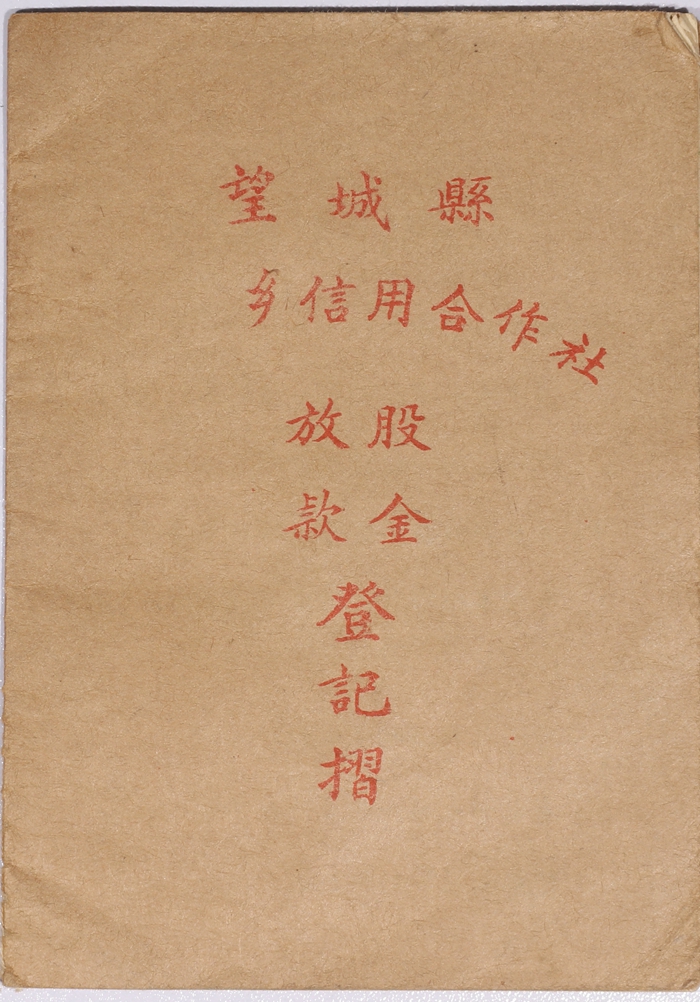 望城縣
乡信用合作社
股金
放款
登記摺